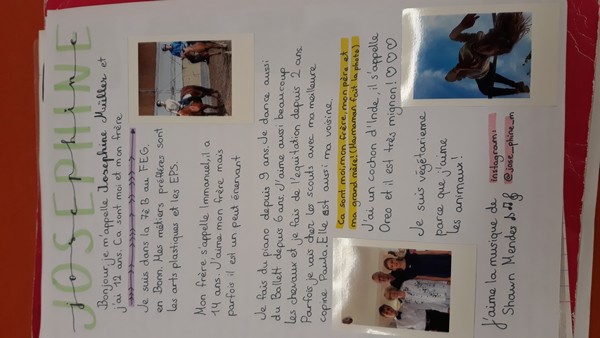 JOSEPHINE
josephine
Bonjour, je m'appelle Josephine Müller et
j'ai 12 ans. Ca sont moi et mon frère
Je suis dans la 7è B au FEG
en Bonn. Mes métiers préferes sont
les arts plastiques et les EPS.
Mon frère s'appelle Immanuel, il a
14 ans. J'aime mon frère mais
parfois il est un peut énervant
Je fais du piano depuis 9 ans. Je dance aussi
du Ballett depuis 6 ans. J'aime aussi beaucoup
les chevaux et je fais de l'équitation depuis 2 ans.
Parfois je vais cher les scouts avec ma meilleure
copine Paula. Elle est aussi ma voisine.
Ca sont moi, mon frère, mon père et
ma grand mère! (Ma maman fait la photo)
J'ai un cochon d'Inde, il s'appelle
Oreo et il est très mignon! ♡♡♡
Je suis végétarienne
parce que j'aime
les animaux!
J'aime la musique de
Shawn Mendes
Instagram:
@jose_phine_m